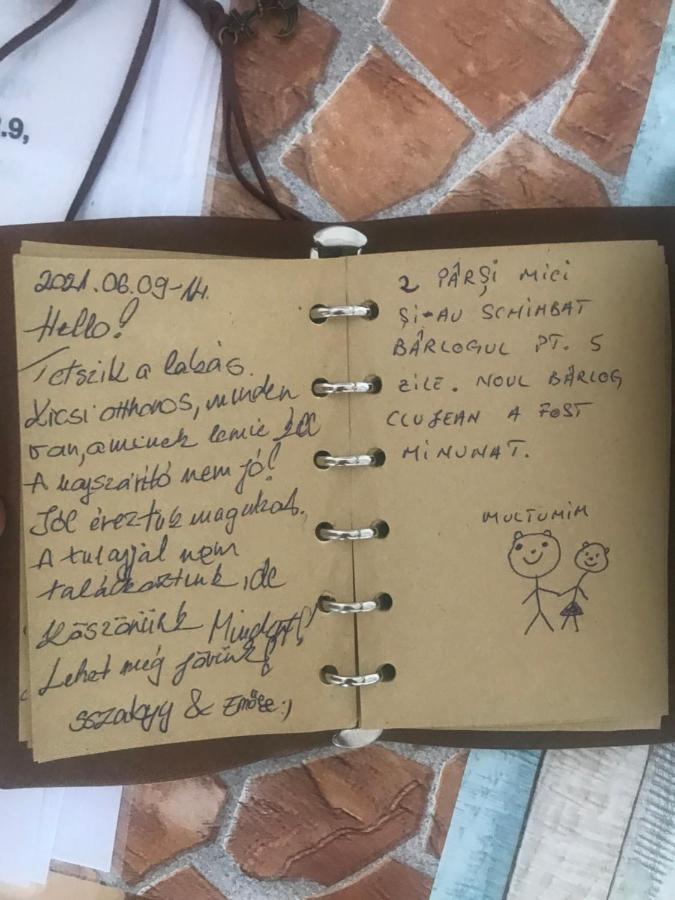 .9,
2021.06.09-14.
Hello!
Tetszik a lakás.
Kicsi otthonos, minden
van, aminek lennie kell
A hajszárító nem jó!
Jól éreztük magukat.
A tulajjal nem
találkoztunk, de
Köszönünk Mindent!
Lehet még jövünk!
& Emőke :)
2 PÂRȘI MICI
ȘI-AU SCHIMBAT
BÂRLOGUL PT. 5
ZILE. NOUL BÂRLOG
CLUJEAN A FOST
MINUNAT.
MULTUMIM